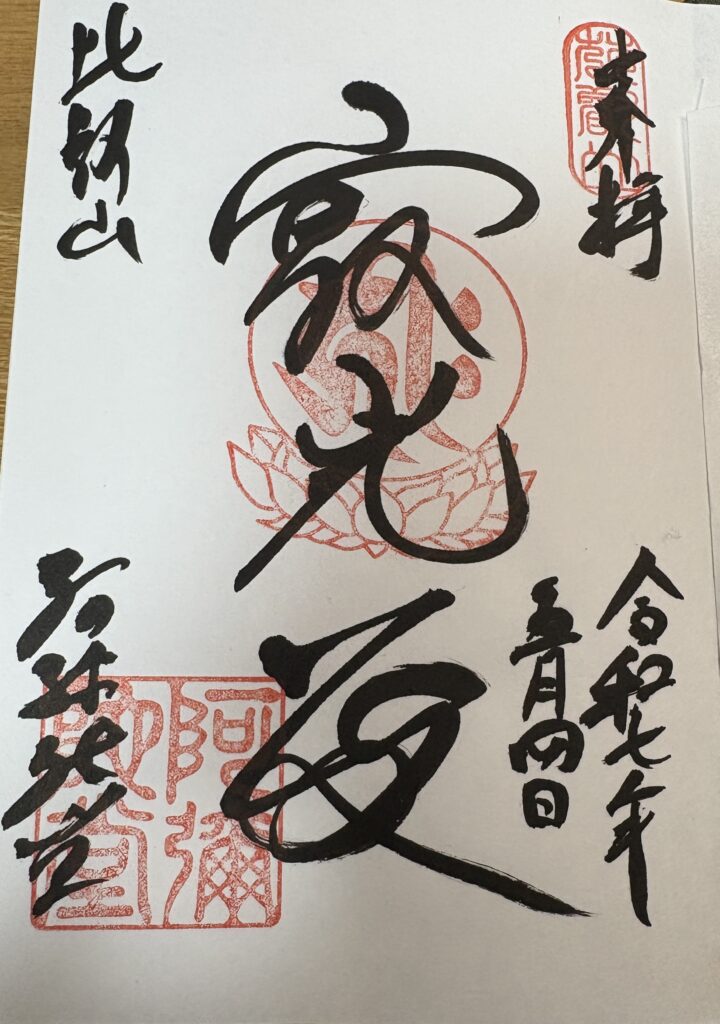 奉拝
令和七年
五月四日
寂光夏
比叡山
阿弥陀堂
阿彌
陀堂